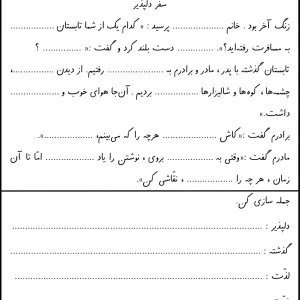 سفر دلپذیر
زنگ آخر بود . خانم .................... پرسید : « کدام یک از شما تابستان ....................
به مسافرت رفته‌اید؟». .................... دست بلند کرد و گفت :« .................... ؟
تابستان گذشته با پدر ، مادر و برادرم به .................... رفتیم. از دیدن ....................،
چشمه‌ها ، کوه‌ها و شالیزارها .................... بردیم . آن‌جا هوای خوب و ....................
داشت.»
برادرم گفت :« کاش .................... هرچه را که می‌بینم، ....................».
مادرم گفت :« وقتی به .................... بروی ، نوشتن را یاد .................... امّا تا آن
زمان ، هر چه را .................... ، نقّاشی کن.»
جمله سازی کن.
دلپذیر : ....................
گذشته : ....................
لذّت : ....................